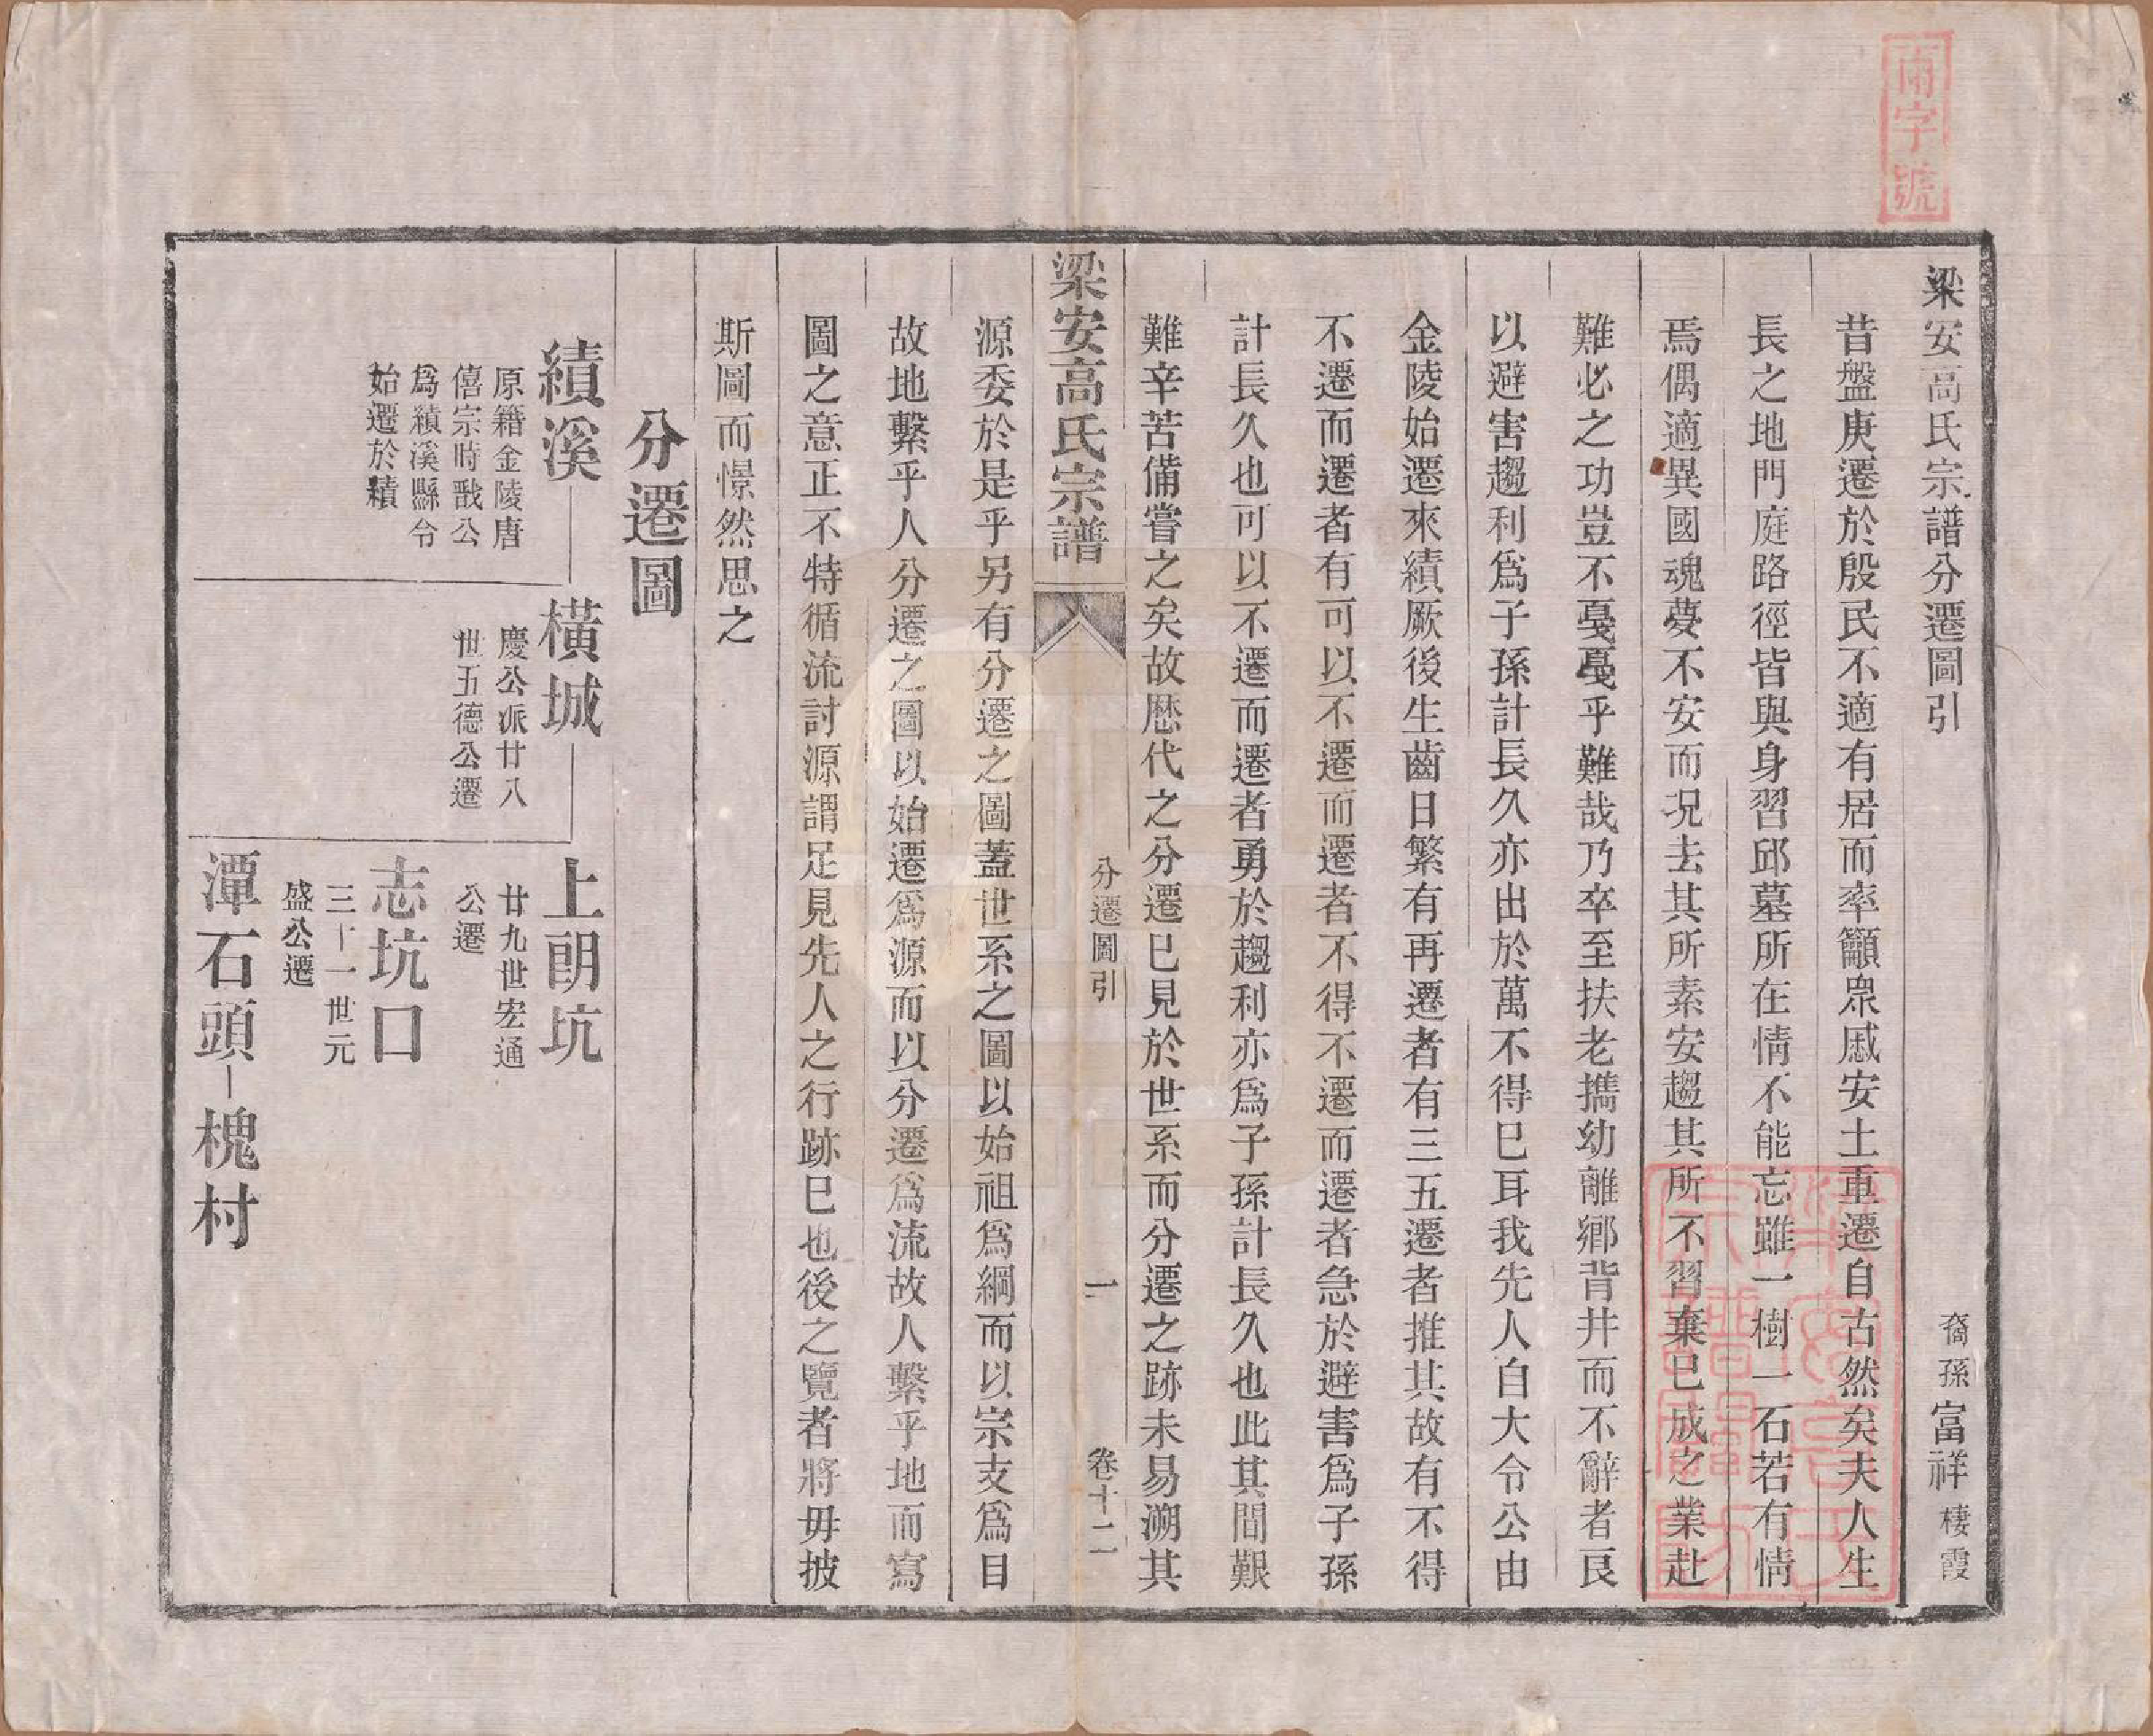 雨字號
梁安高氏宗譜分遷圖引
裔孫富祥棲霞
昔盤庚遷於殷民不適有居而率籲眾戚安土重遷自古然矣夫人生
長之地門庭路徑皆與身習邱墓所在情不能忘雖一樹一石若有情
焉偶適異國魂夢不安而况去其所素安趨其所不習棄已成之業赴
難必之功豈不戞戞乎難哉乃卒至扶老攜幼離鄉背井而不辭者良
以避害趨利為子孫計長久亦出於萬不得已耳我先人自大令公由
金陵始遷來績厥後生齒日繁有再遷者有三五遷者推其故有不得
不遷而遷者有可以不遷而遷者不得不遷而遷者急於避害為子孫
計長久也可以不遷而遷者勇於趨利亦為子孫計長久也此其間艱
難辛苦備嘗之矣故歷代之分遷已見於世系而分遷之跡未易溯其
梁安高氏宗譜
分遷圖引
一
卷十二
源委於是乎另有分遷之圖蓋世系之圖以始祖為綱而以宗支為目
故地繫乎人分遷之圖以始遷為源而以分遷為流故人繫乎地而寫
圖之意正不特循流討源謂足見先人之行跡已也後之覽者將毋披
斯圖而憬然思之
分遷圖
績溪
原籍金陵唐
僖宗時戩公
為績溪縣令
始遷於績
橫城
慶公派廿八
世五德公遷
上朗坑
廿九世宏通
公遷
志坑口
三十一世元
盛公遷
潭石頭
槐村